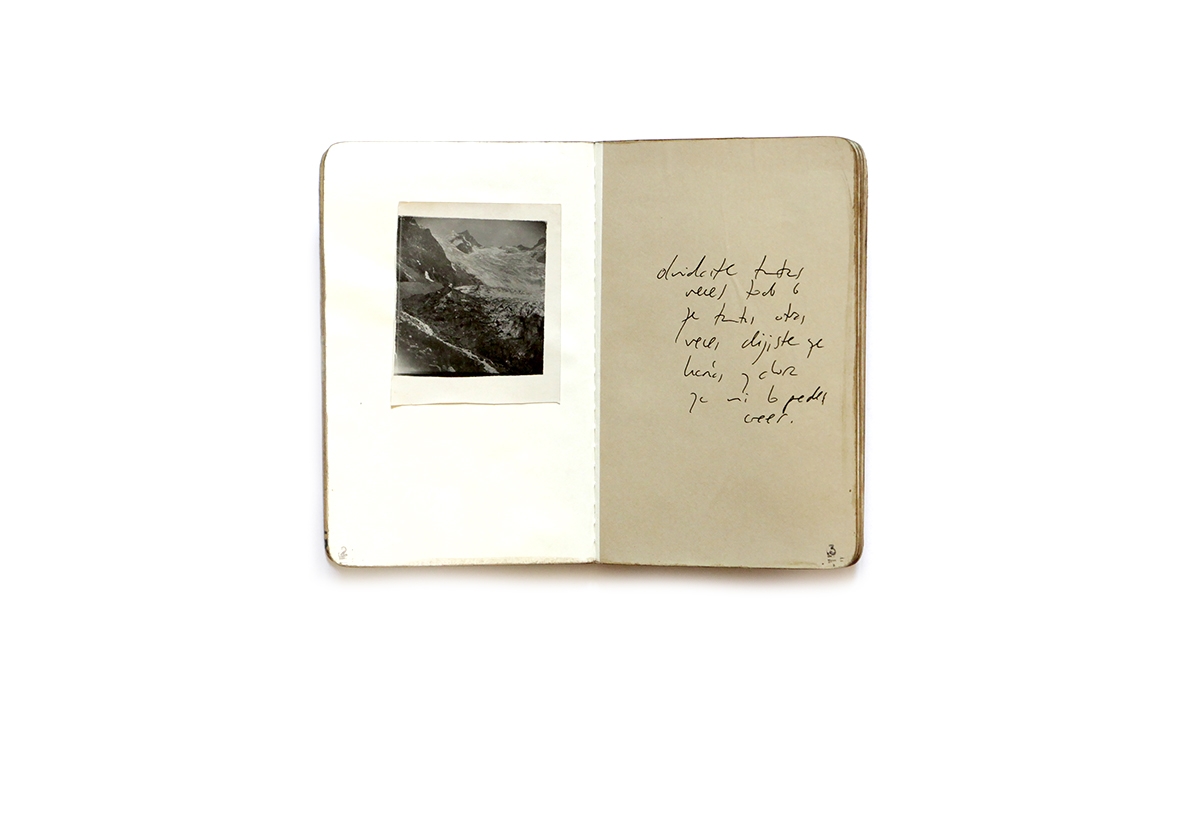 olvidaste tantas
veces todo lo
que tantas otras
veces dijiste que
harías y ahora
ya ni lo puedes
creer.
2
3